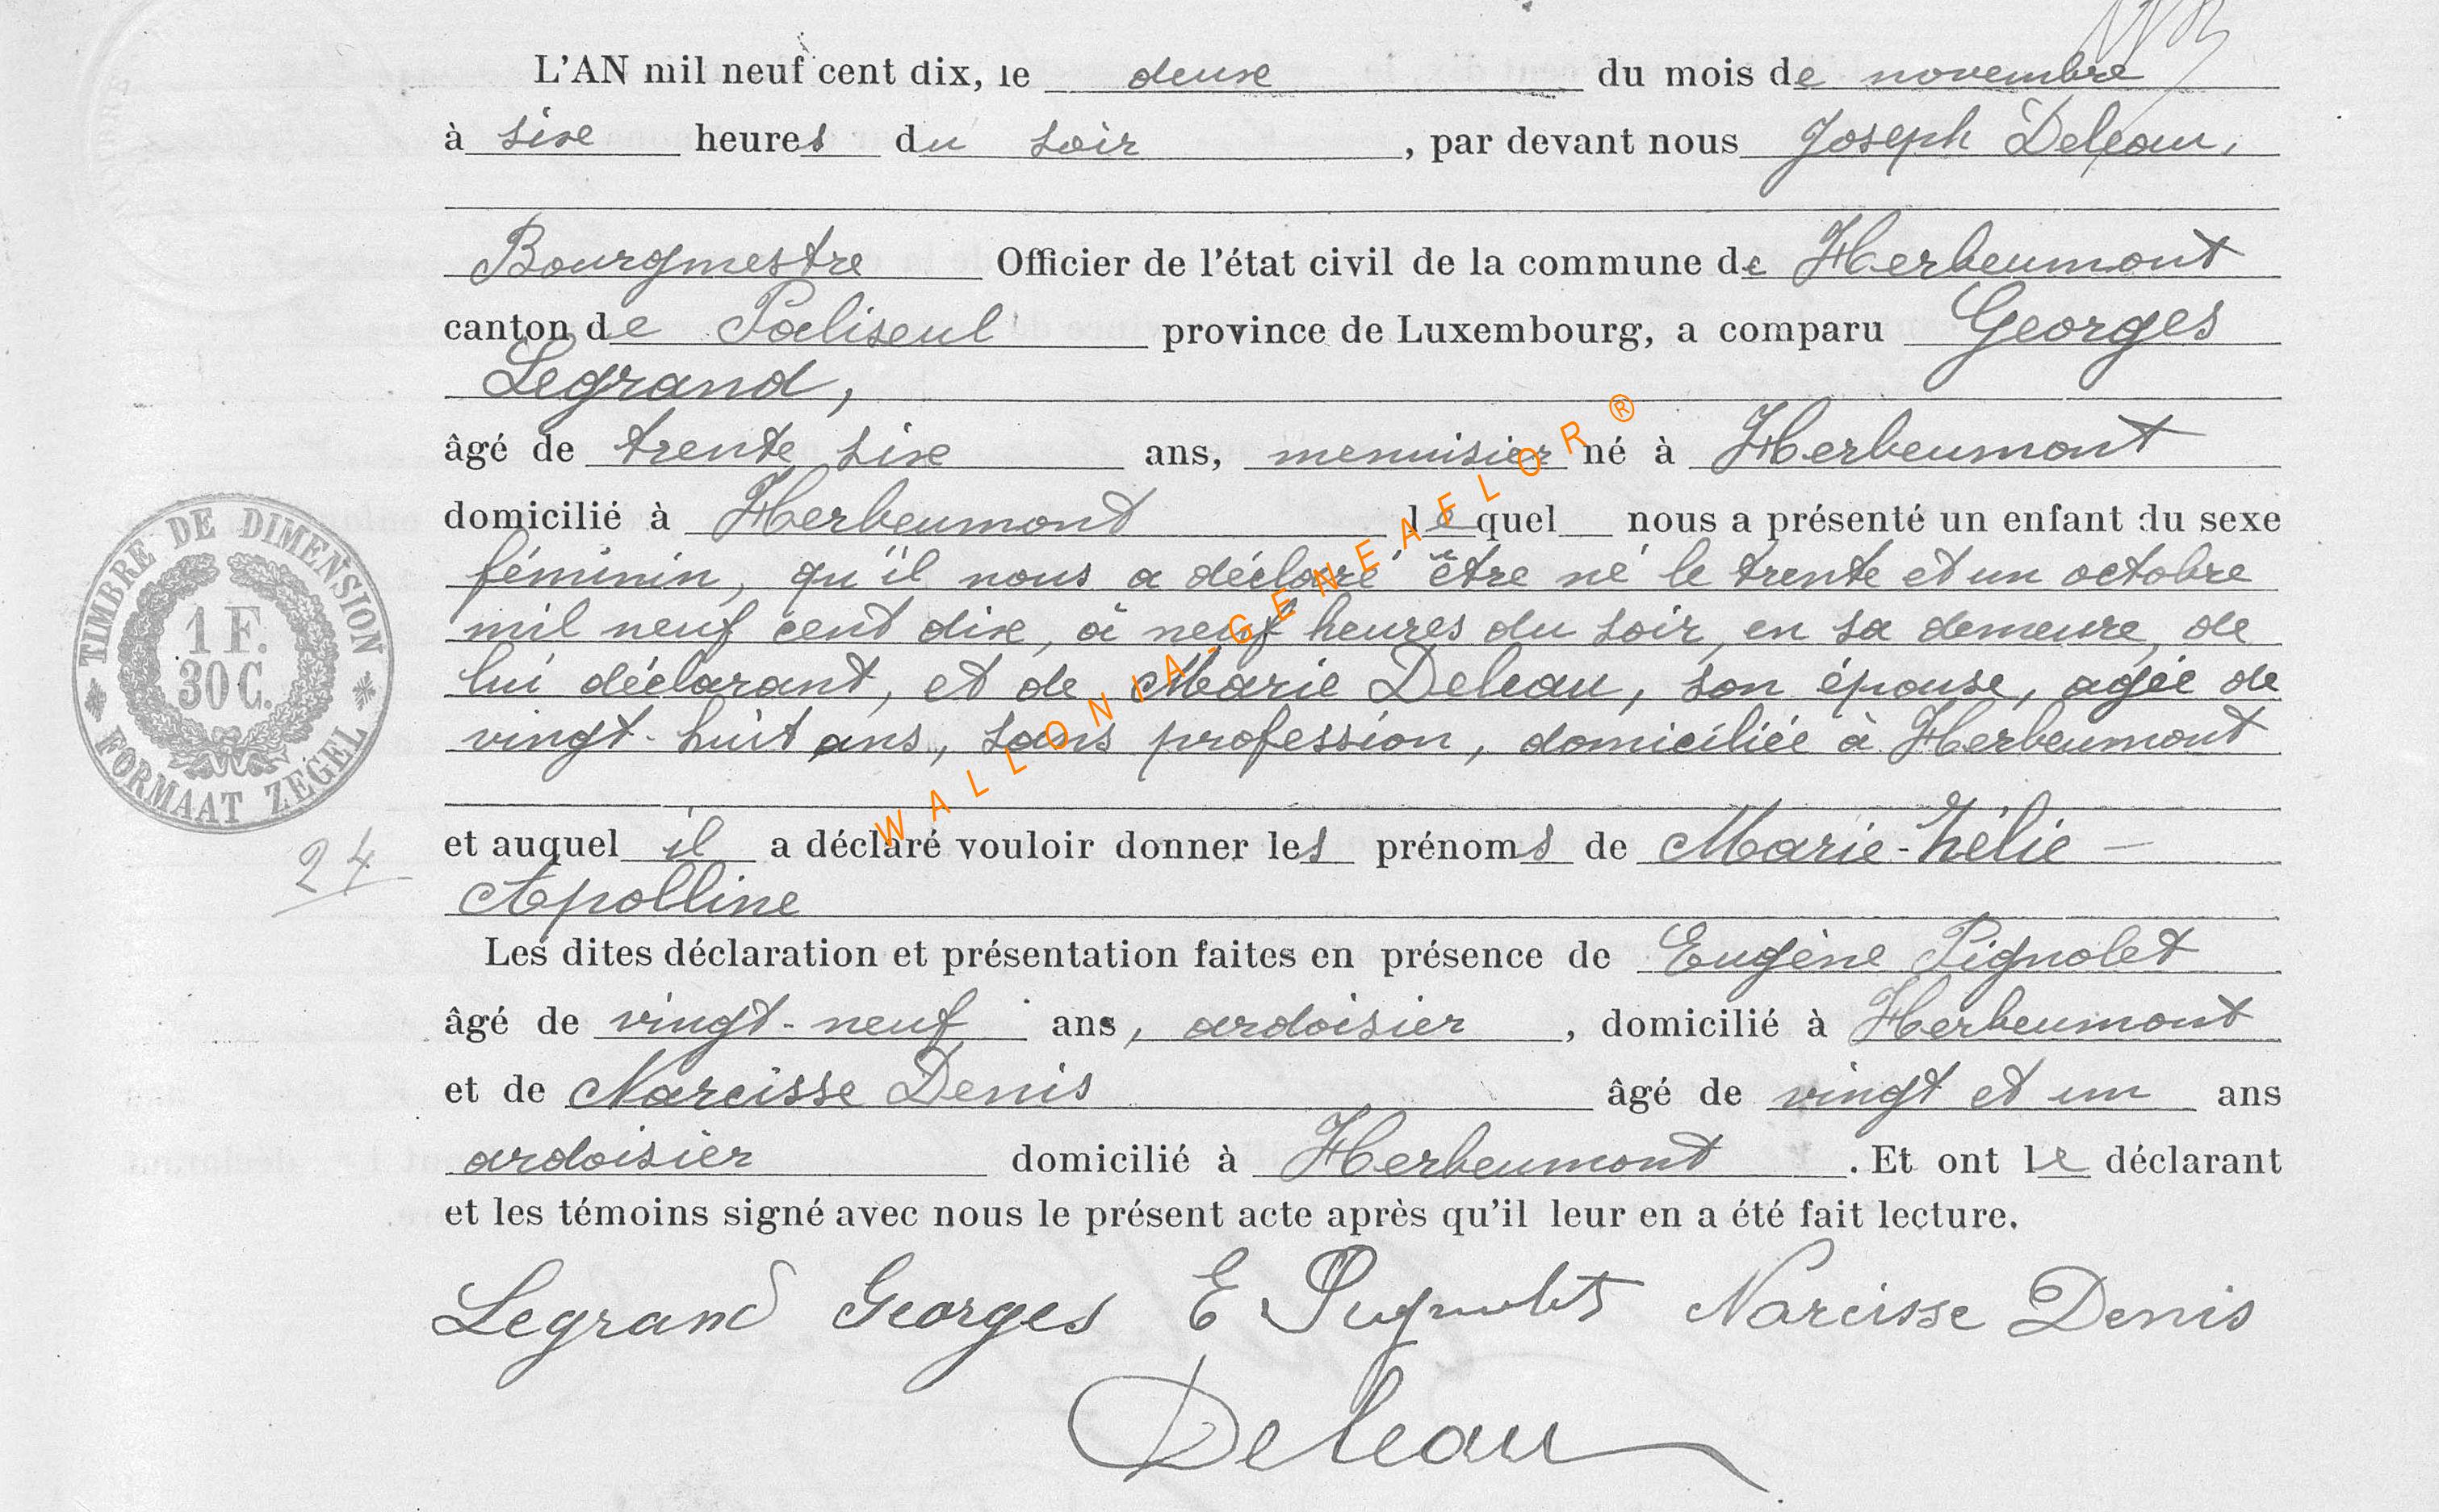 L'AN mil neuf cent dix, le deux du mois de novembre
à six heures du soir, par devant nous Joseph Deleau,
Bourgmestre Officier de l'état civil de la commune de Herbeumont
canton de Paliseul province de Luxembourg, a comparu Georges
Legrand,
âgé de trente six ans, menuisier né à Herbeumont
domicilié à Herbeumont lequel nous a présenté un enfant du sexe
féminin, qu'il nous a déclaré être né le trente et un octobre
mil neuf cent dix, à neuf heures du soir, en sa demeure, de
lui déclarant, et de Marie Deleau, son épouse, agée de
vingt-huit ans, sans profession, domiciliée à Herbeumont
et auquel il a déclaré vouloir donner les prénoms de Marie-Zélie-
Apolline
Les dites déclaration et présentation faites en présence de Eugène Pignolet
âgé de vingt-neuf ans, ardoisier, domicilié à Herbeumont
et de Narcisse Denis âgé de vingt et un ans
ardoisier domicilié à Herbeumont. Et ont le déclarant
et les témoins signé avec nous le présent acte après qu'il leur en a été fait lecture.
Legrand Georges E Pignolet Narcisse Denis
Deleau
TIMBRE DE DIMENSION
1 F.
30 C.
FORMAAT ZEGEL
24
WALLONIA-GENEAFLOR®